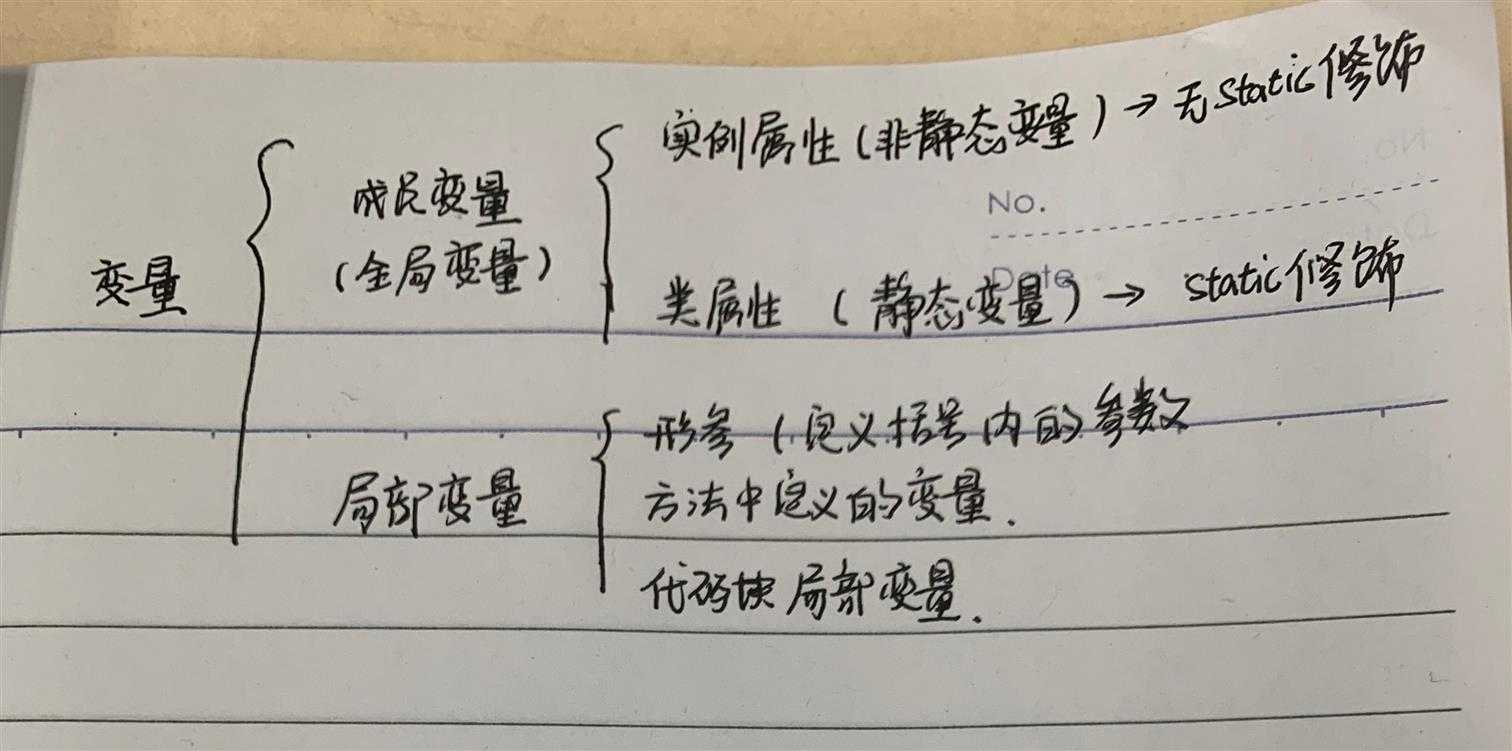 实例属性(非静态变量)→无static修饰
成员变量
No.
(全局变量)
变量
Date
类属性 (静态变量)→ static修饰
形参(定义括号内的参数
局部变量
方法中定义的变量.
代码块局部变量.